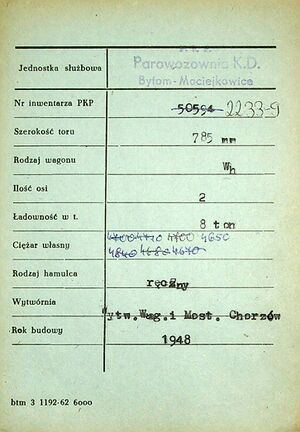 P. K. P.
Jednostka służbowa Parowozownia K.D.
Bytom-Maciejkowice
Nr inwentarza PKP 50594 2233-9
Szerokość toru 785 mm
Rodzaj wagonu Wh
Ilość osi 2
Ładowność w t. 8 ton
Ciężar własny 4700 4650
Rodzaj hamulca ręczny
Wytwórnia Wytw.Wag.i Most. Chorzów
Rok budowy 1948
btm 3 1192-62 6000